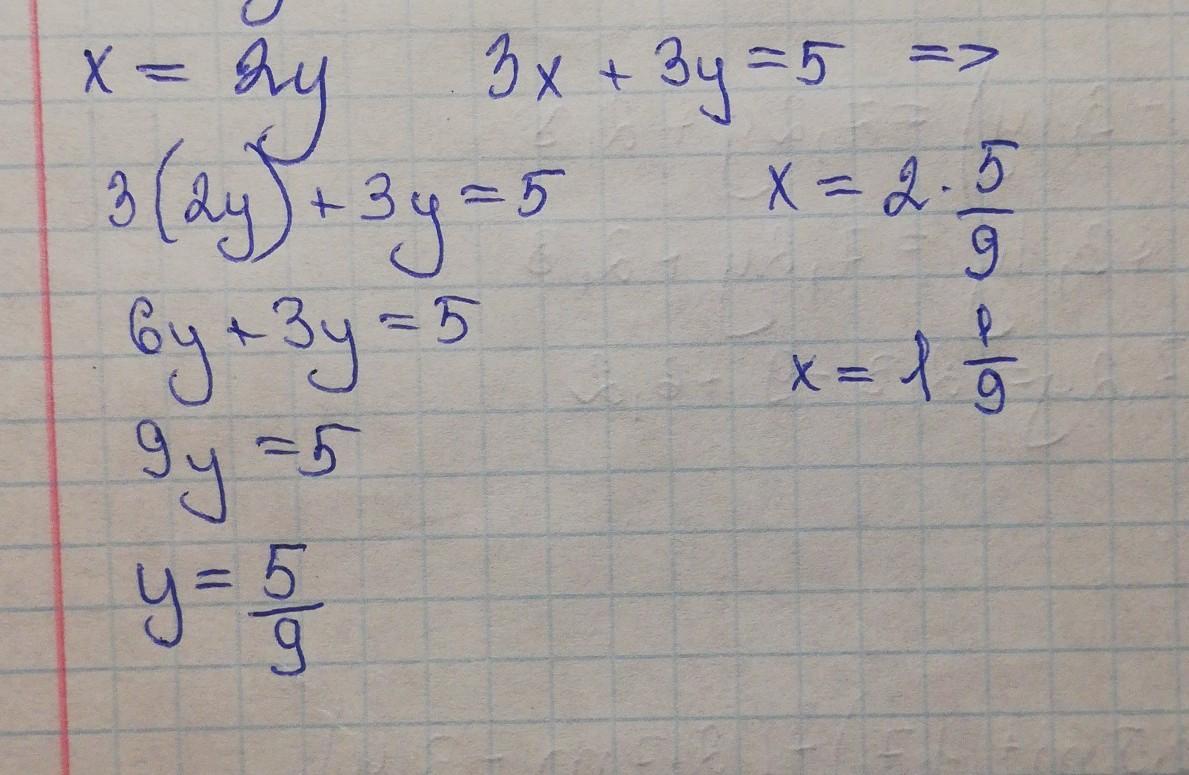 x = 2y 3x + 3y = 5 =>
3(2y) + 3y = 5
6y + 3y = 5
9y = 5
y = 5/9
x = 2 · 5/9
x = 1 1/9